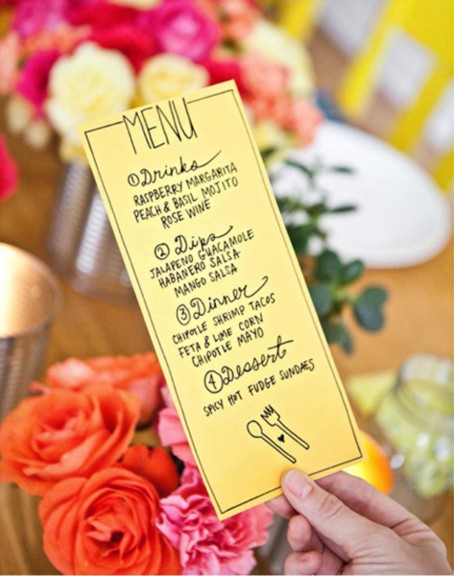 MENU
① Drinks
RASPBERRY MARGARITA
PEACH & BASIL MOJITO
ROSE WINE
② Dips
JALAPENO GUACAMOLE
HABANERO SALSA
MANGO SALSA
③ Dinner
CHIPOTLE SHRIMP TACOS
FETA & LIME CORN
CHIPOTLE MAYO
④ Dessert
SPICY HOT FUDGE SUNDAES